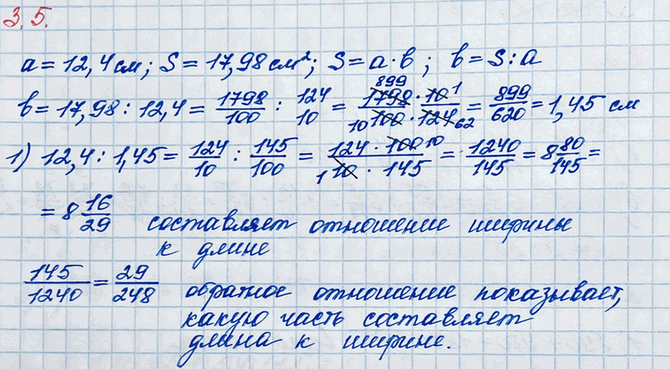 3.5.
a = 12,4 см; S = 17,98 см²; S = a · b; b = S : a
b = 17,98 : 12,4 = 1798/100 : 124/10 = 899 1798 · 10 1 / 10 100 · 124 62 = 899/620 = 1,45 см
1) 12,4 : 1,45 = 124/10 : 145/100 = 124 · 100 10 / 1 10 · 145 = 1240/145 = 8 80/145 =
= 8 16/29 составляет отношение ширины
к длине
145/1240 = 29/248 обратное отношение показывает,
какую часть составляет
длина к ширине.